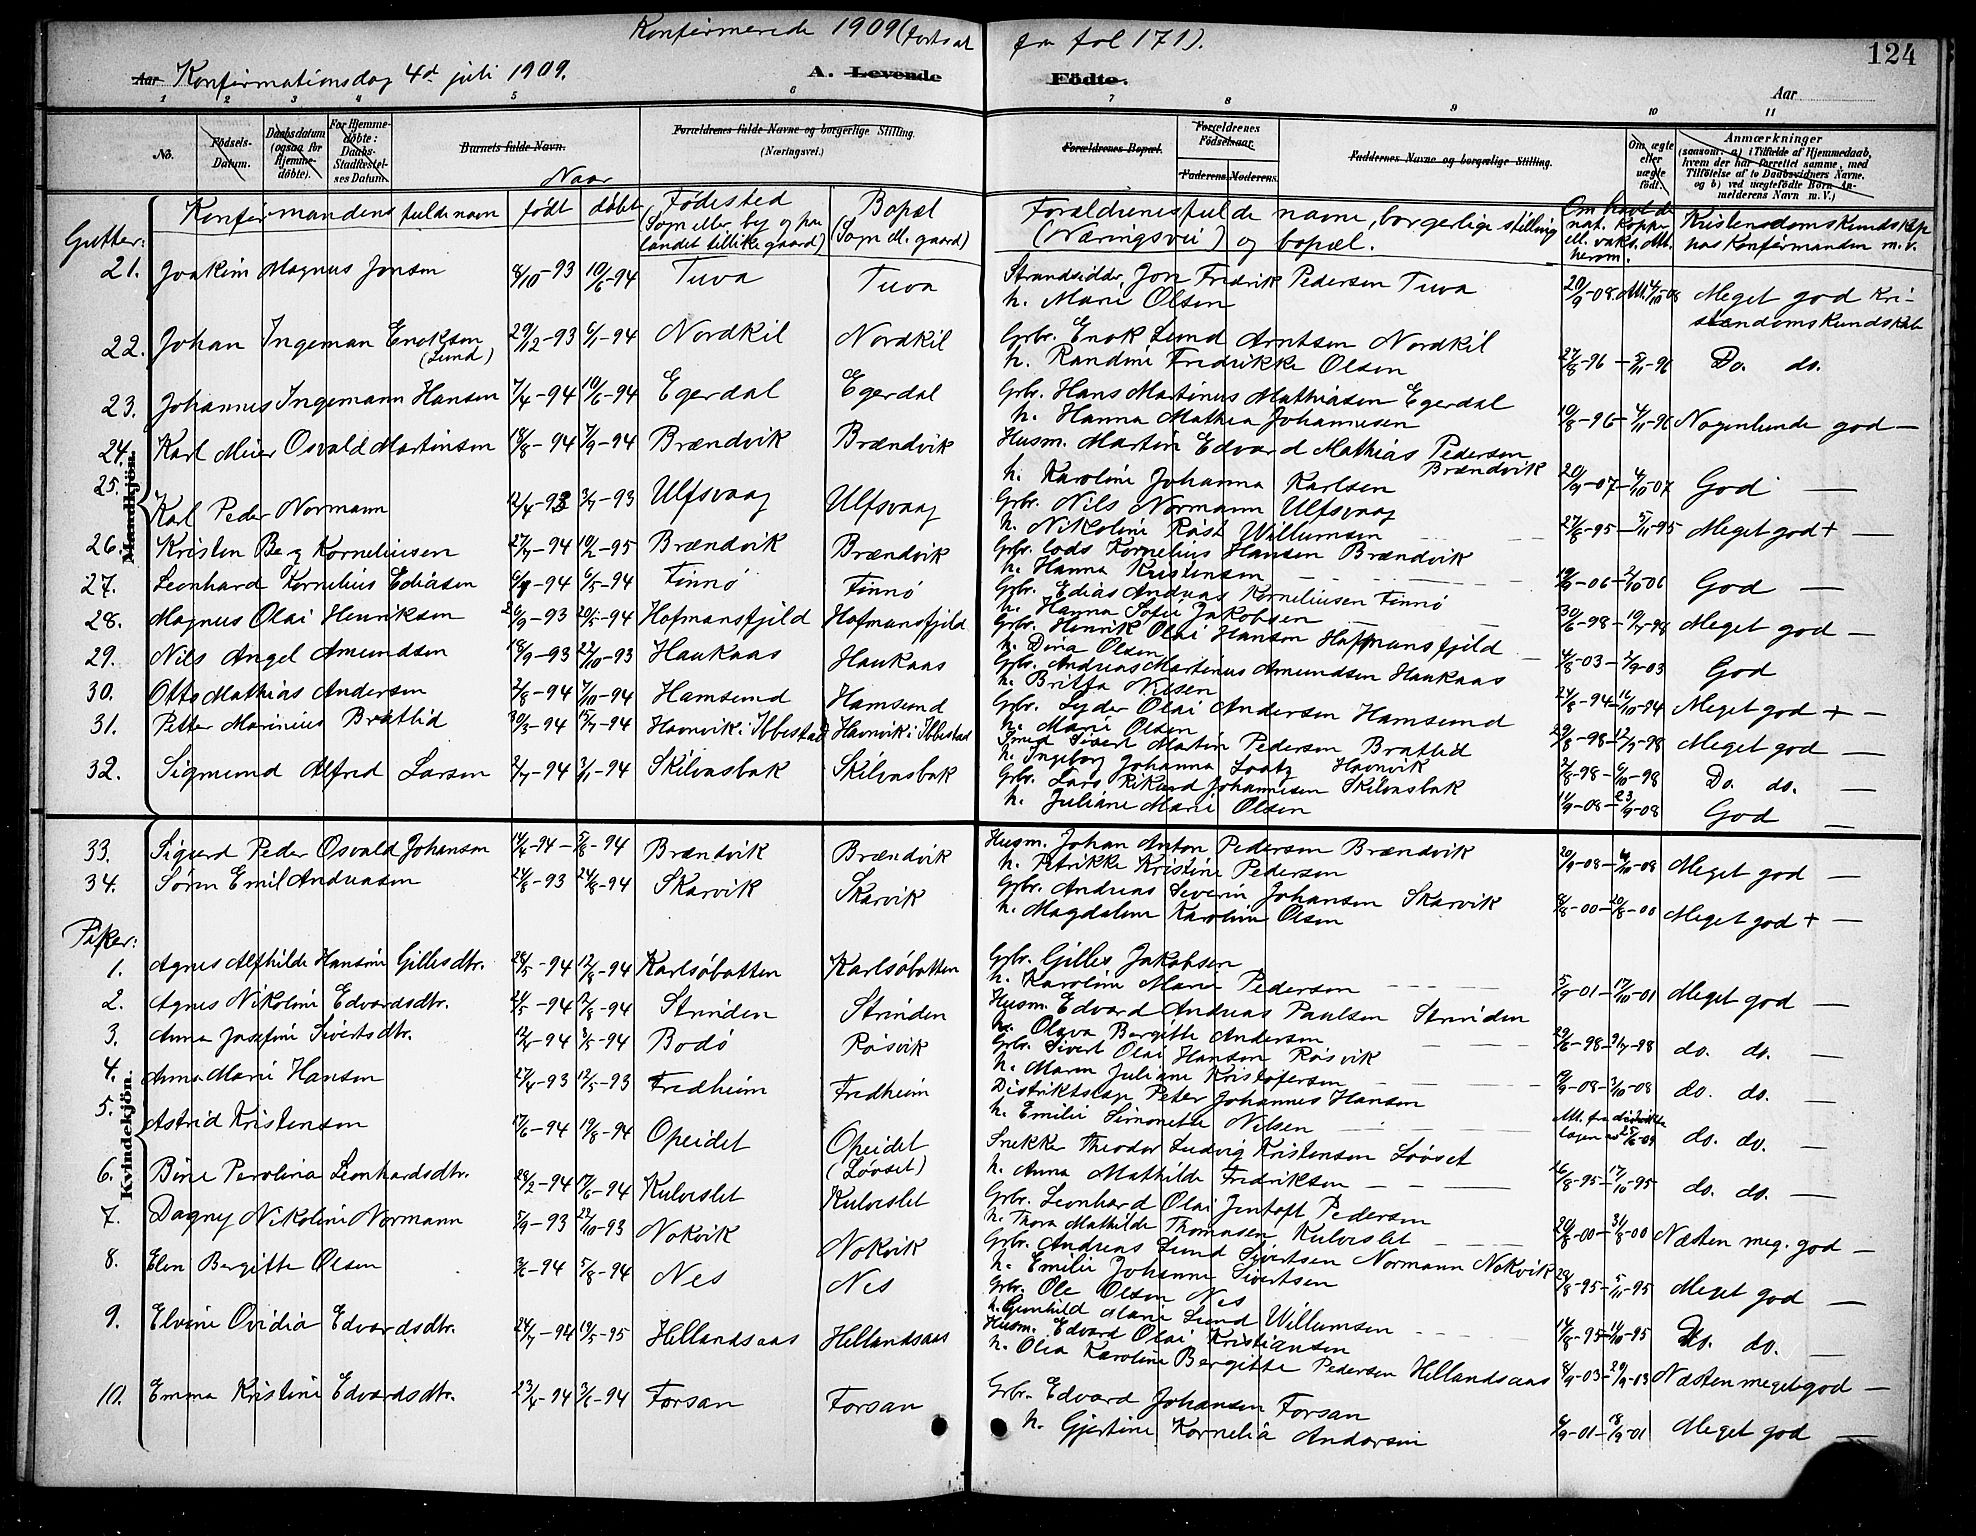 Konfirmerede 1909 (fortsat fra fol 171).
124
Aar Konfirmationsdag 4d juli 1909. A. Levende Födte. Aar
1 2 3 4 5 6 7 8 9 10 11
No. Födsels-Datum. Daabsdatum (ogsaa for Hjemme-döbte). For Hjemme-döbte: Daabs-Stadfæstel-ses Datum. Barnets fulde Navn. Forældrenes fulde Navne og borgerlige Stilling. (Næringsvei.) Forældrenes Bopæl. Forældrenes Födselsaar. Faderens. Moderens. Faddernes Navne og borgerlige Stilling. Om ægte eller uægte født. Anmærkninger (saasom: a) i Tilfælde af Hjemmedaab, hvem der har forrettet samme, med Tilföielse af to Daabsvidners Navne. og b) ved uægtefödte Börn An-melderens Navn m. V.)
Naar
Gutter: Konfirmandens fulde navn født döbt Födested (Sogn eller by og paa landet tillike gaard) Bopæl (Sogn ell. gaard) Forældrenes fulde navne, borgerlige stilling (Næringsvei) og bopæl. Om havt de nat. kopper ell. vaks. Att. herom. Kristendomskundskap hos Konfirmanden m. v.
Mandkjön.
21. Joakim Magnus Jonsen 8/10-93 10/6-94 Tuva Tuva Strandsidder Jon Fredrik Pedersen Tuva 20/9-08. Att. 4/10-08 Meget god Kri-
h. Marie Olsen standomskundskab
22. Johan Ingeman Enoksen (Lund) 29/12-93 6/1-94 Nordkil Nordkil Grbr. Enok Lund Arntsen Nordkil
h. Randine Fredrikke Olsen 27/8-96 - 5/11-96 Do. do.
23. Johannes Ingemann Hansen 7/4-94 10/6-94 Egerdal Egerdal Grbr. Hans Martinus Mathiasen Egerdal
h. Hanna Mathea Johannesen 19/8-96 - 4/11-96 Nogenlunde god —
24. Karl Meier Osvald Martinsen 18/8-94 9/9-94 Brændvik Brændvik Husm. Martin Edvard Mathias Pedersen Brændvik
h. Karoline Johanna Karlsen 20/9-07 - 4/10-07 God —
25. Karl Peder Normann 12/4-93 3/7-93 Ulfsvaag Ulfsvaag Grbr. Nils Normann Ulfsvaag
h. Nikoline Røst Willumsen 27/8-95 - 5/11-95 Meget god + —
26. Kristen Berg Korneliussen 27/7-94 10/2-95 Brændvik Brændvik Grbr. lods Kornelius Hansen Brændvik
h. Hanna Kristensen 19/9-06 - 2/10-06 God —
27. Leonhard Kornelius Ediasen 6/1-94 6/5-94 Finnö Finnö Grbr. Edias Andreas Korneliusen Finnö
h. Hanna Sofie Jakobsen 30/6-98 - 10/7-98 Meget god —
28. Magnus Olai Henriksen 26/9-93 20/5-94 Hofmansfjeld Hofmansfjeld Grbr. Henrik Olai Hanson Hoffmansfjeld
h. Dina Olsen 4/8-03 - 2/9-03 God
29. Nils Angel Amundsen 18/9-93 22/10-93 Haukaas Haukaas Grbr. Andreas Martinus Amundsen Haukaas
h. Britta Nilsen 24/8-94 - 16/10-94 Meget god + —
30. Otto Mathias Andersen 2/8-94 7/10-94 Hamsund Hamsund Grbr. Lyder Olai Andersen Hamsund
h. Marie Olsen 29/8-98 - 12/9-98 Meget god —
31. Petter Marinius Bratlid 30/3-94 15/7-94 Havnvik i Ibbestad Havnvik i Ibbestad Smed Sivert Martin Pedersen Bratlid
h. Ingeborg Johanna Loatz Havnvik 2/8-98 - 6/10-98 Do. do. —
32. Sigmund Alfred Larsen 2/7-94 3/11-94 Skilvasbak Skilvasbak Grbr. Lars Rikard Johannesen Skilvasbak
h. Juliane Marie Olsen 11/9-08 - 23/9-08 God —
33. Sigurd Peder Osvald Johansen 14/4-94 - 5/8-94 Brændvik Brændvik Husm. Johan Anton Pedersen Brændvik
h. Petrikke Kristine Pedersen 20/9-08 - 4/10-08 Meget god —
34. Sören Emil Andreasen 24/8-93 24/8-94 Skarvik Skarvik Grbr. Andreas Severin Johansen Skarvik
h. Magdalene Karoline Olsen 8/8-00 - 20/8-00 Meget god + —
Piker:
Kvindekjön.
1. Agnes Alfhilde Hansine Gillesdtr. 28/5-94 12/8-94 Karlsöbotten Karlsöbotten Grbr. Gilles Jakobsen
h. Karoline Marie Pedersen 5/9-01 - 17/10-01 Meget god —
2. Agnes Nikoline Edvardsdtr. 21/5-94 12/8-94 Strinden Strinden Husm. Edvard Andreas Paulsen Strinden
h. Olava Bergitte Andersen 29/6-98 - 9/7-98 do. do. —
3. Anna Josefine Sivertsdtr. 12/4-94 3/5-94 Bodö Rösvik Grbr. Sivert Olai Hansen Rösvik
h. Maren Juliane Kristofersen 19/9-08 - 3/10-08 do. do. —
4. Anna Marie Hansen 27/4-93 12/5-93 Fredheim Fredheim Distriktslæge Peter Johannes Hansen
h. Emilie Simonette Nilsen Att. fra distrikts lægen av 25/6-09 do. do. —
5. Astrid Kristensen 17/6-94 19/8-94 Opeidet Opeidet (Lövset) Snekker Theodor Ludvig Kristensen Löôset
h. Anna Mathilde Fredriksen 16/8-95 - 17/10-95 do. do. —
6. Bine Perolina Leonhardsdtr. 28/2-94 17/6-94 Kulvislet Kulvislet Grbr. Leonhard Olai Jentoft Pedersen
h. Thora Mathilde Thomasen Kulvislet 20/8-00 - 31/8-00 Næsten meg. god —
7. Dagny Nikoline Normann 5/9-93 22/10-93 Nokvik Nokvik Grbr. Andreas Lund Sivertsen Normann Nokvik
h. Emilie Johanne Sivertsen 28/8-95 - 5/11-95 Meget god —
8. Elen Bergitte Olsen 3/6-94 5/8-94 Nes Nes Grbr. Ole Olsen Nes
h. Gunhild Marie Lund Willumsen 14/8-95 - 14/10-95 Do. do. —
9. Elvine Ovidia Edvardsdtr. 24/7-94 19/5-95 Hellandsaas Hellandsaas Husm. Edvard Olai Kristiansen
h. Olea Karoline Bergitte Pedersen Hellandsaas 8/9-03 - 29/9-03 Næsten meget god —
10. Emma Kristine Edvardsdtr. 23/4-94 3/6-94 Forsan Forsan Grbr. Edvard Johansen Forsan
h. Gjertine Kornelia Andersen 6/9-01 - 18/9-01 Meget god —